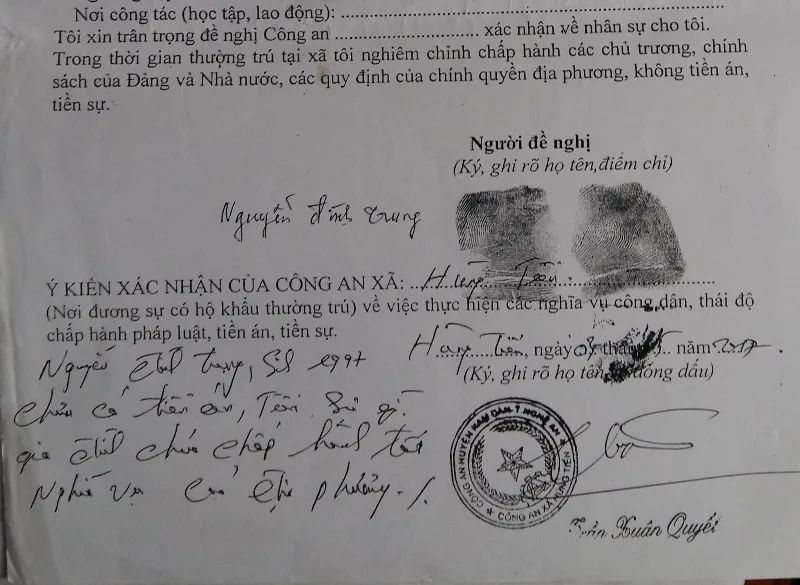 Nơi công tác (học tập, lao động): ........................................
Tôi xin trân trọng đề nghị Công an .............................. xác nhận về nhân sự cho tôi.
Trong thời gian thường trú tại xã tôi nghiêm chỉnh chấp hành các chủ trương, chính
sách của Đảng và Nhà nước, các quy định của chính quyền địa phương, không tiền án,
tiền sự.
Người đề nghị
(Ký, ghi rõ họ tên,điểm chỉ)
Nguyễn đình Trung
Ý KIẾN XÁC NHẬN CỦA CÔNG AN XÃ: Hưng Tiến
(Nơi đương sự có hộ khẩu thường trú) về việc thực hiện các nghĩa vụ công dân, thái độ
chấp hành pháp luật, tiền án, tiền sự.
Tiến, ngày 08 tháng 5 năm
(Ký, ghi rõ họ tên đóng dấu)
Nguyễn Trung, 1997
có tiền án, Tiền Sự gì
chấp hành tốt
Nghĩa vụ phương ./.
CÔNG AN HUYỆN NAM ĐÀN T NGHỆ AN
CÔNG AN XÃ HƯNG TIẾN
Trần Xuân Quyết